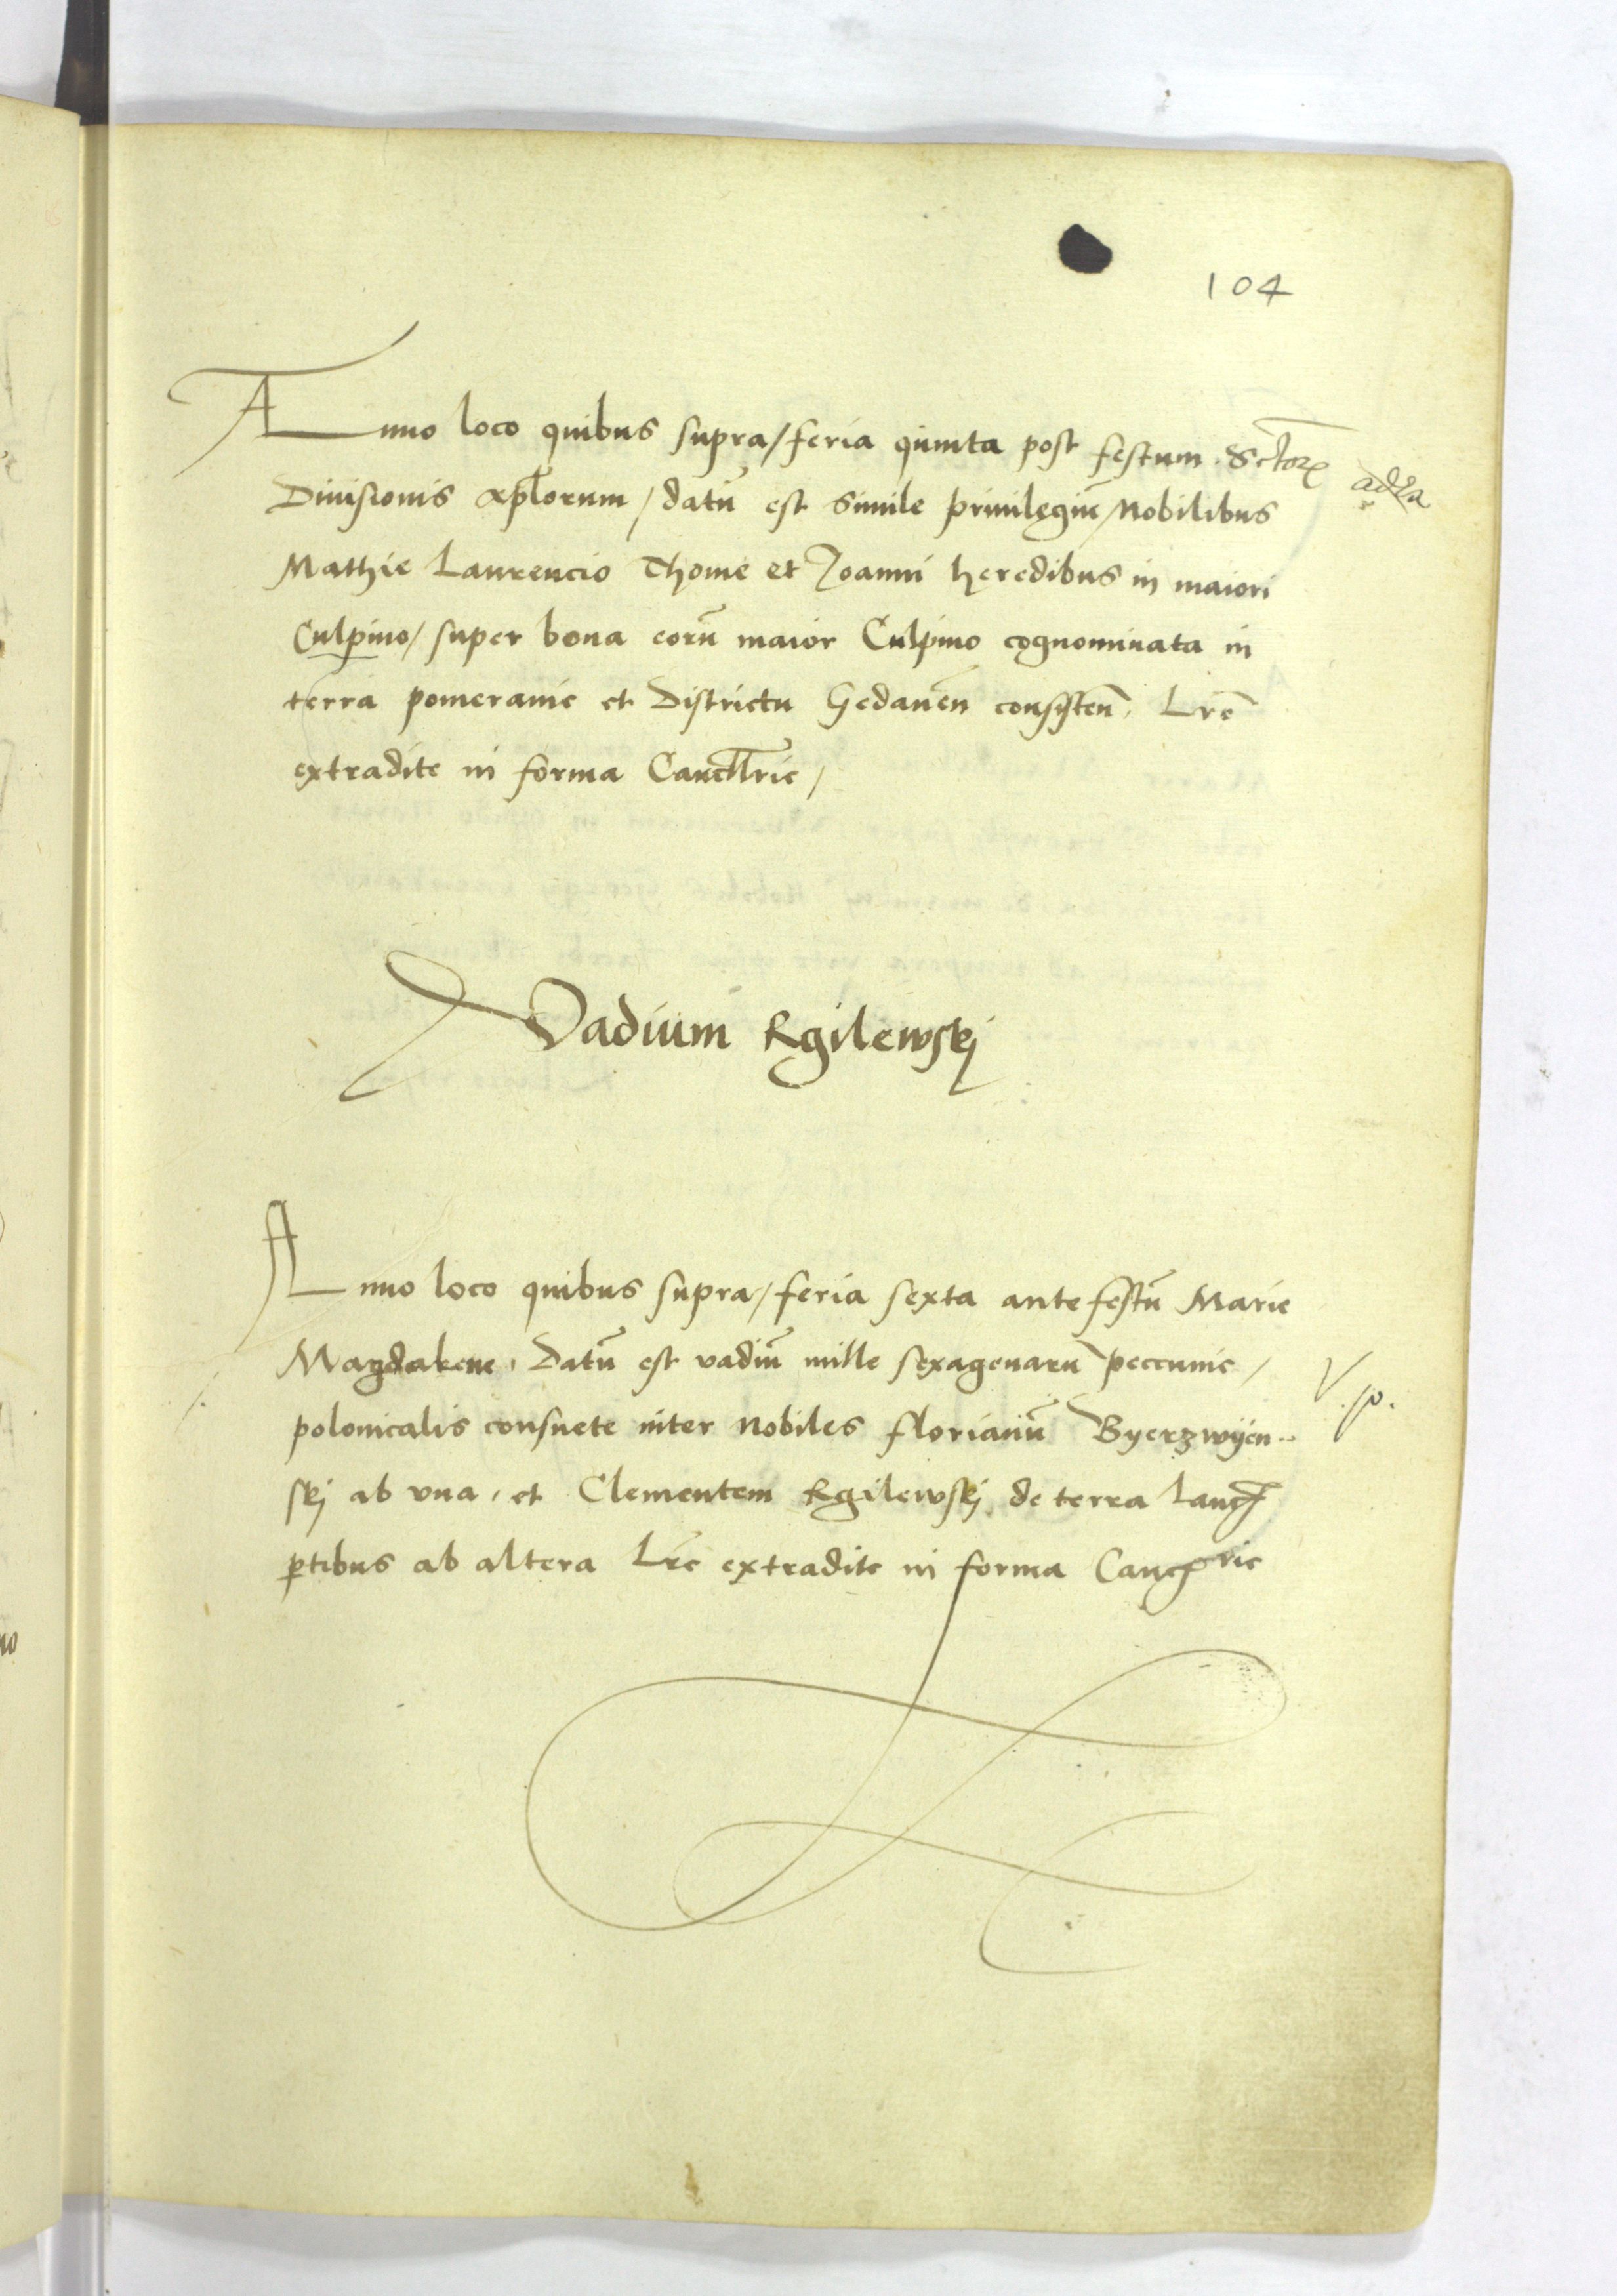 104
Anno loco quibus supra / feria quinta post festum Sctorȝ
Diuisionis apl̄orum / datū est simile priuilegiū / Nobilibus
Mathie Laurencio Thome et Joanni heredibus in maiori
Culpino / super bona eorū maior Culpino cognominata in
terra pomeranie et Districtu Gedaneñ consisteñ. Lrē
extradite in forma Cancllrie /
Vadium Rgilewskj
Anno loco quibus supra / feria sexta ante festū Marie
Magdalene, Datū est vadiū mille sexagenarū peccunie /
polonicalis consuete inter Nobiles florianū Byerzwyen-
skj ab vna, et Clementem Rgilewskj de terra Lancȝ
ꝑtibus ab altera Lrē extradite in forma Cancrie
V. p.